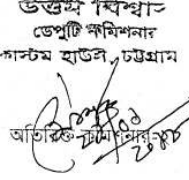 উত্তম বিশ্বাস
ডেপুটি কমিশনার
কাস্টম হাউস, চট্টগ্রাম
অতিরিক্ত কমিশনার